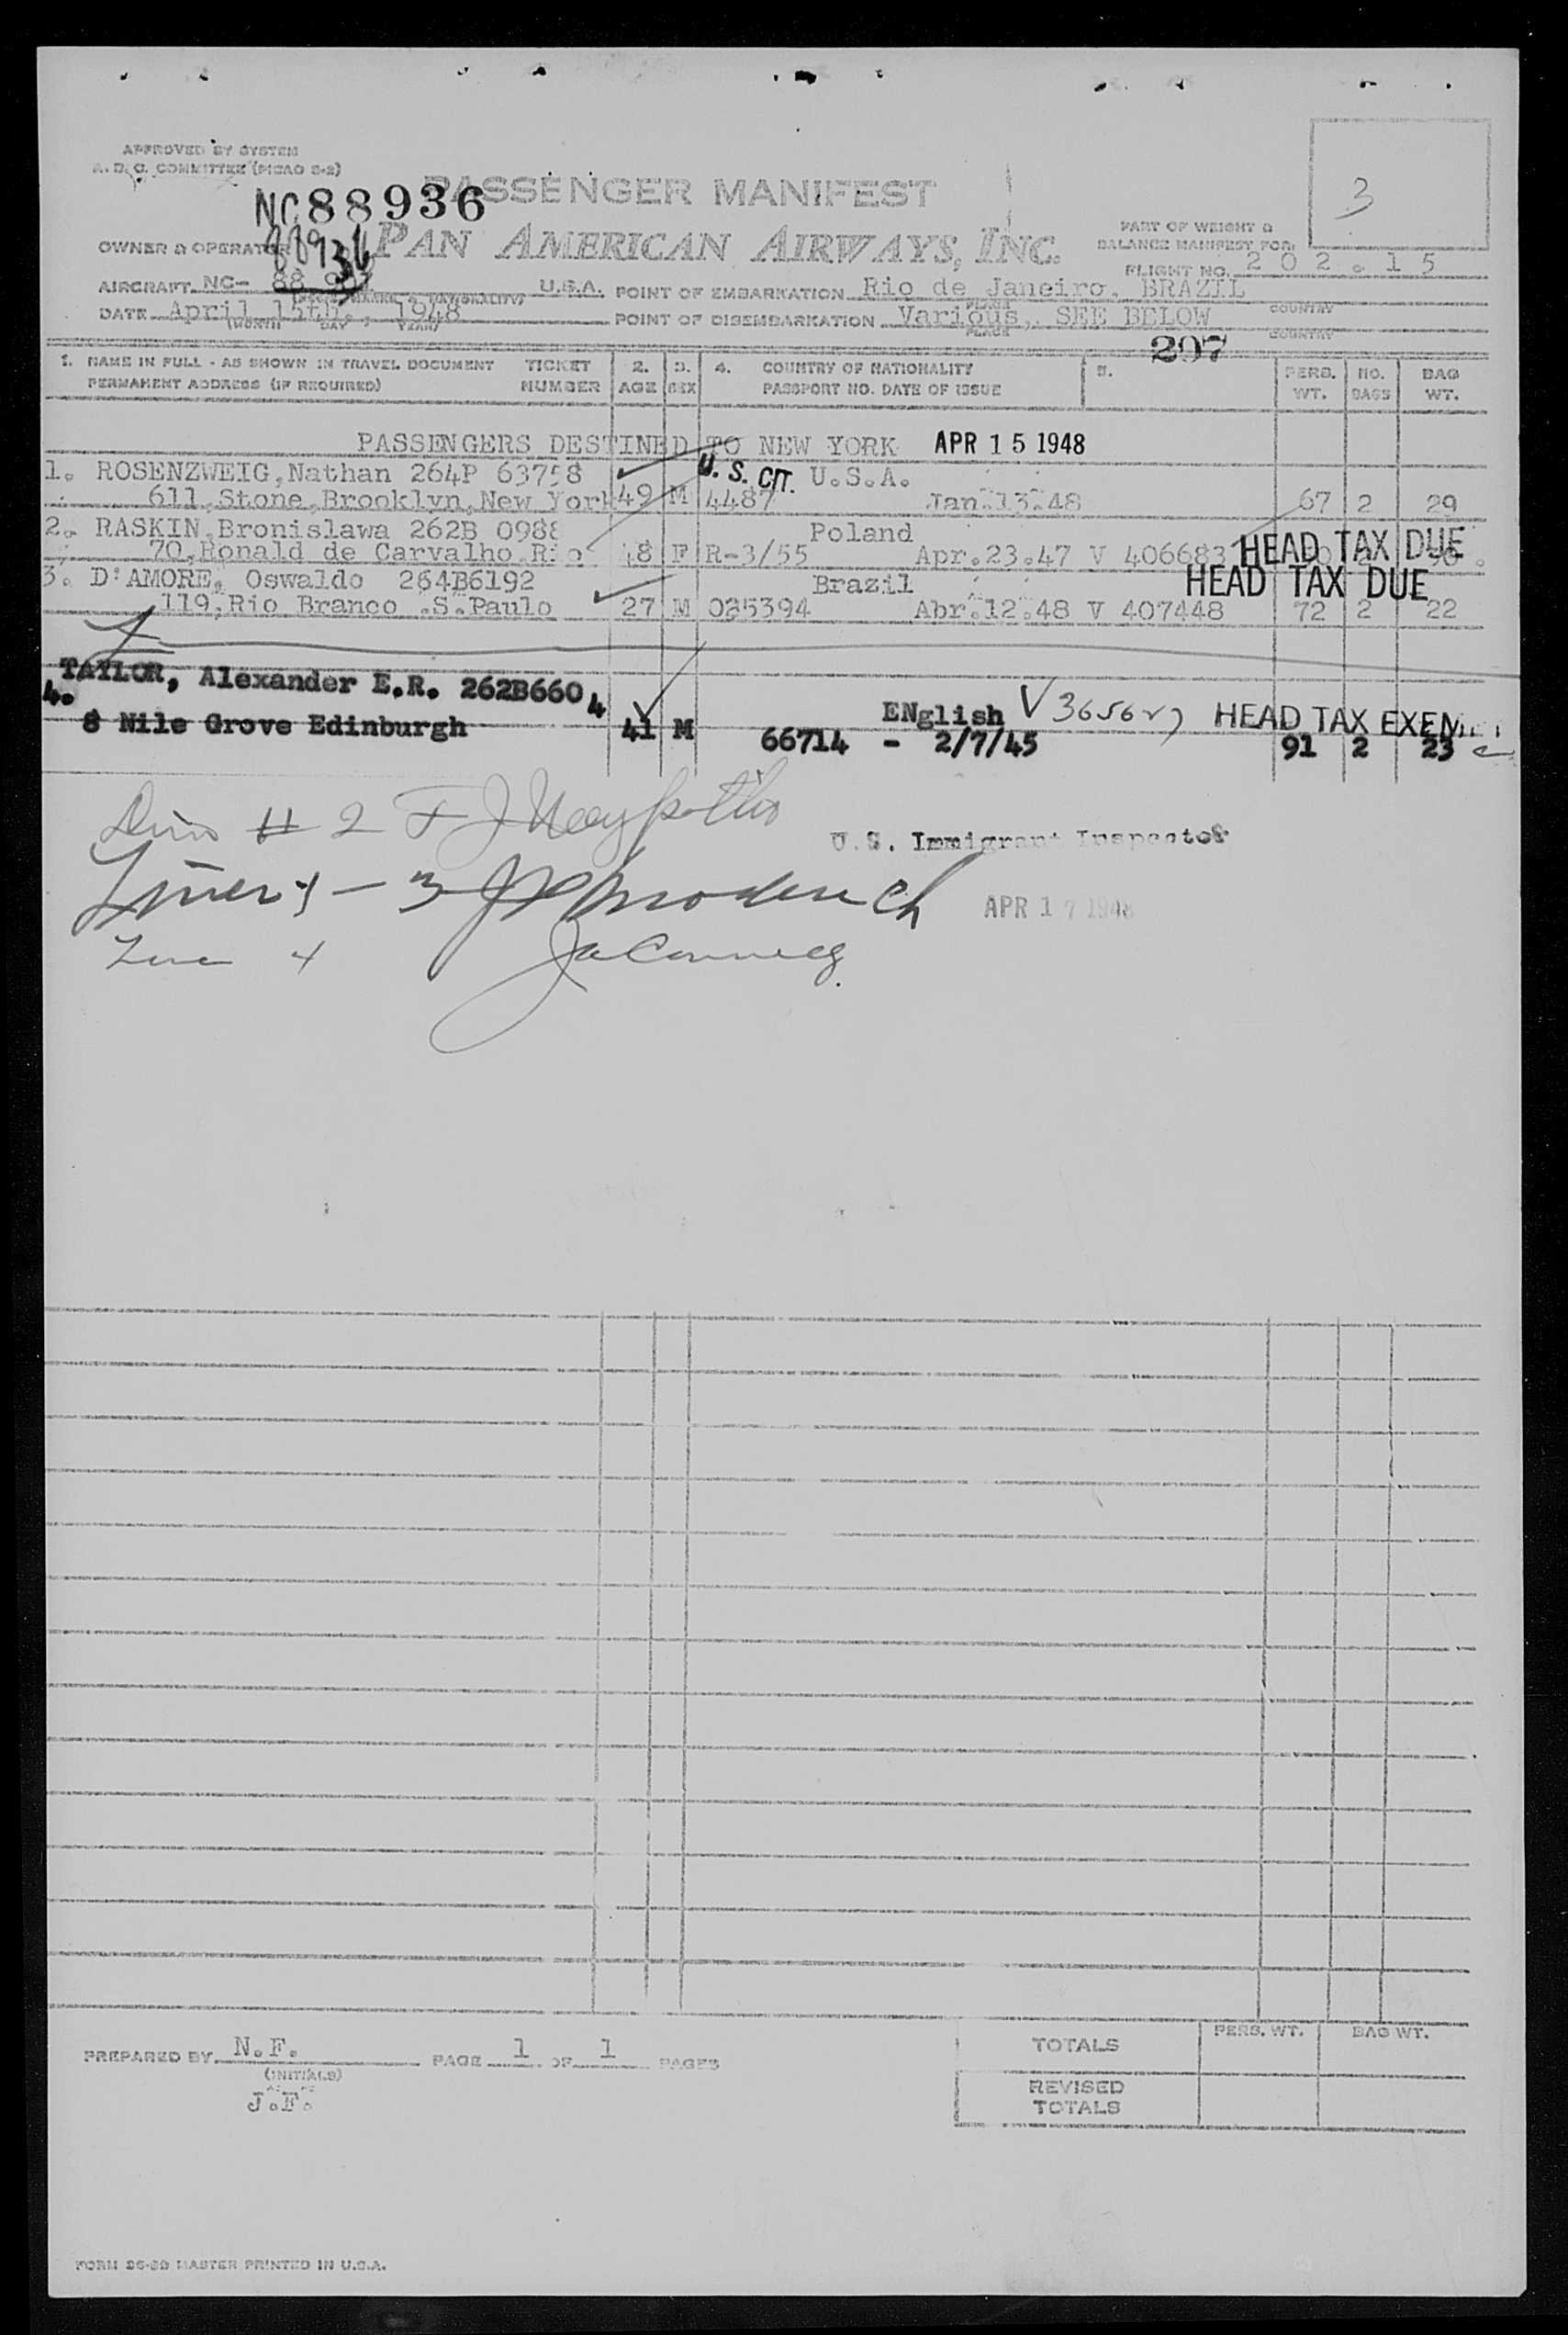 APPROVED BY SYSTEM
A. D. C. COMMITTEE (PICAO S-2)
3
NC88936
PASSENGER MANIFEST
88936
OWNER & OPERATOR PAN AMERICAN AIRWAYS, INC.
PART OF WEIGHT &
BALANCE MANIFEST FOR:
FLIGHT NO. 202.15
AIRCRAFT NC- 88 U.S.A. POINT OF EMBARKATION Rio de Janeiro, BRAZIL
PLACE COUNTRY
DATE April 15th, 1948 POINT OF DISEMBARKATION Various, SEE BELOW
(MONTH DAY YEAR) PLACE COUNTRY
297
1. NAME IN FULL - AS SHOWN IN TRAVEL DOCUMENT TICKET 2. 3. 4. COUNTRY OF NATIONALITY 5. PERS. NO. BAG
PERMANENT ADDRESS (IF REQUIRED) NUMBER AGE SEX PASSPORT NO. DATE OF ISSUE WT. BAGS WT.
PASSENGERS DESTINED TO NEW YORK APR 15 1948
1. ROSENZWEIG,Nathan 264P 63758 U. S. CIT. U.S.A.
611,Stone,Brooklyn,New York 49 M 4487 Jan.13.48 67 2 29
2. RASKIN,Bronislawa 262B 0988 Poland
70,Ronald de Carvalho.Rio 48 F R-3/55 Apr.23.47 V 406683 HEAD TAX DUE
3. D'AMORE, Oswaldo 264B6192 Brazil HEAD TAX DUE
119,Rio Branco .S.Paulo 27 M 025394 Abr.12.48 V 407448 72 2 22
4. TAYLOR, Alexander E.R. 262B6604 ENglish HEAD TAX EXEMPT
8 Nile Grove Edinburgh 41 M 66714 - 2/7/45 91 2 23
# 2
U.S. Immigrant Inspector
3
APR 17 1948
Line 4
PREPARED BY N.F. PAGE 1 OF 1 PAGES
(INITIALS)
J.F.
PERS. WT. BAG WT.
TOTALS
REVISED
TOTALS
FORM MASTER PRINTED IN U.S.A.